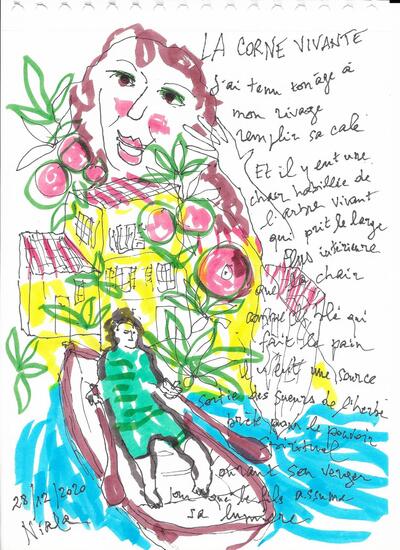 LA CORNE VIVANTE
j'ai tenu son âge à
mon rivage
remplir sa cale
Et il y eut une
chair habillée de
l'arbre vivant
qui prit le large
Plus intérieure
que la chair
comme le blé qui
fait le pain
il y eut une source
sortie des sueurs de l'herbe
prête pour le pouvoir
spirituel
ouvrant son verger
pour que le fils assume
sa lumière
28/12/2020
Niala